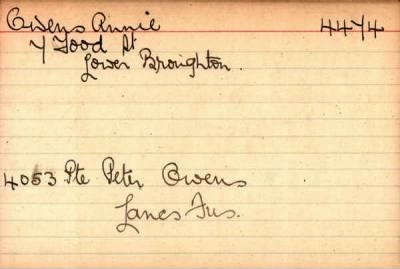 Owens Annie 4474
7 Tood St
Lower Broughton.
4053 Pte Peter Owens
Lancs Fus.